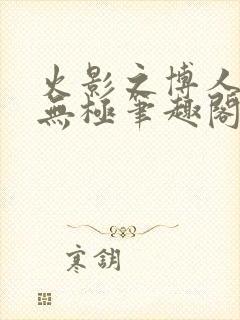 火影之博人
無極筆趣閣
寒鈅